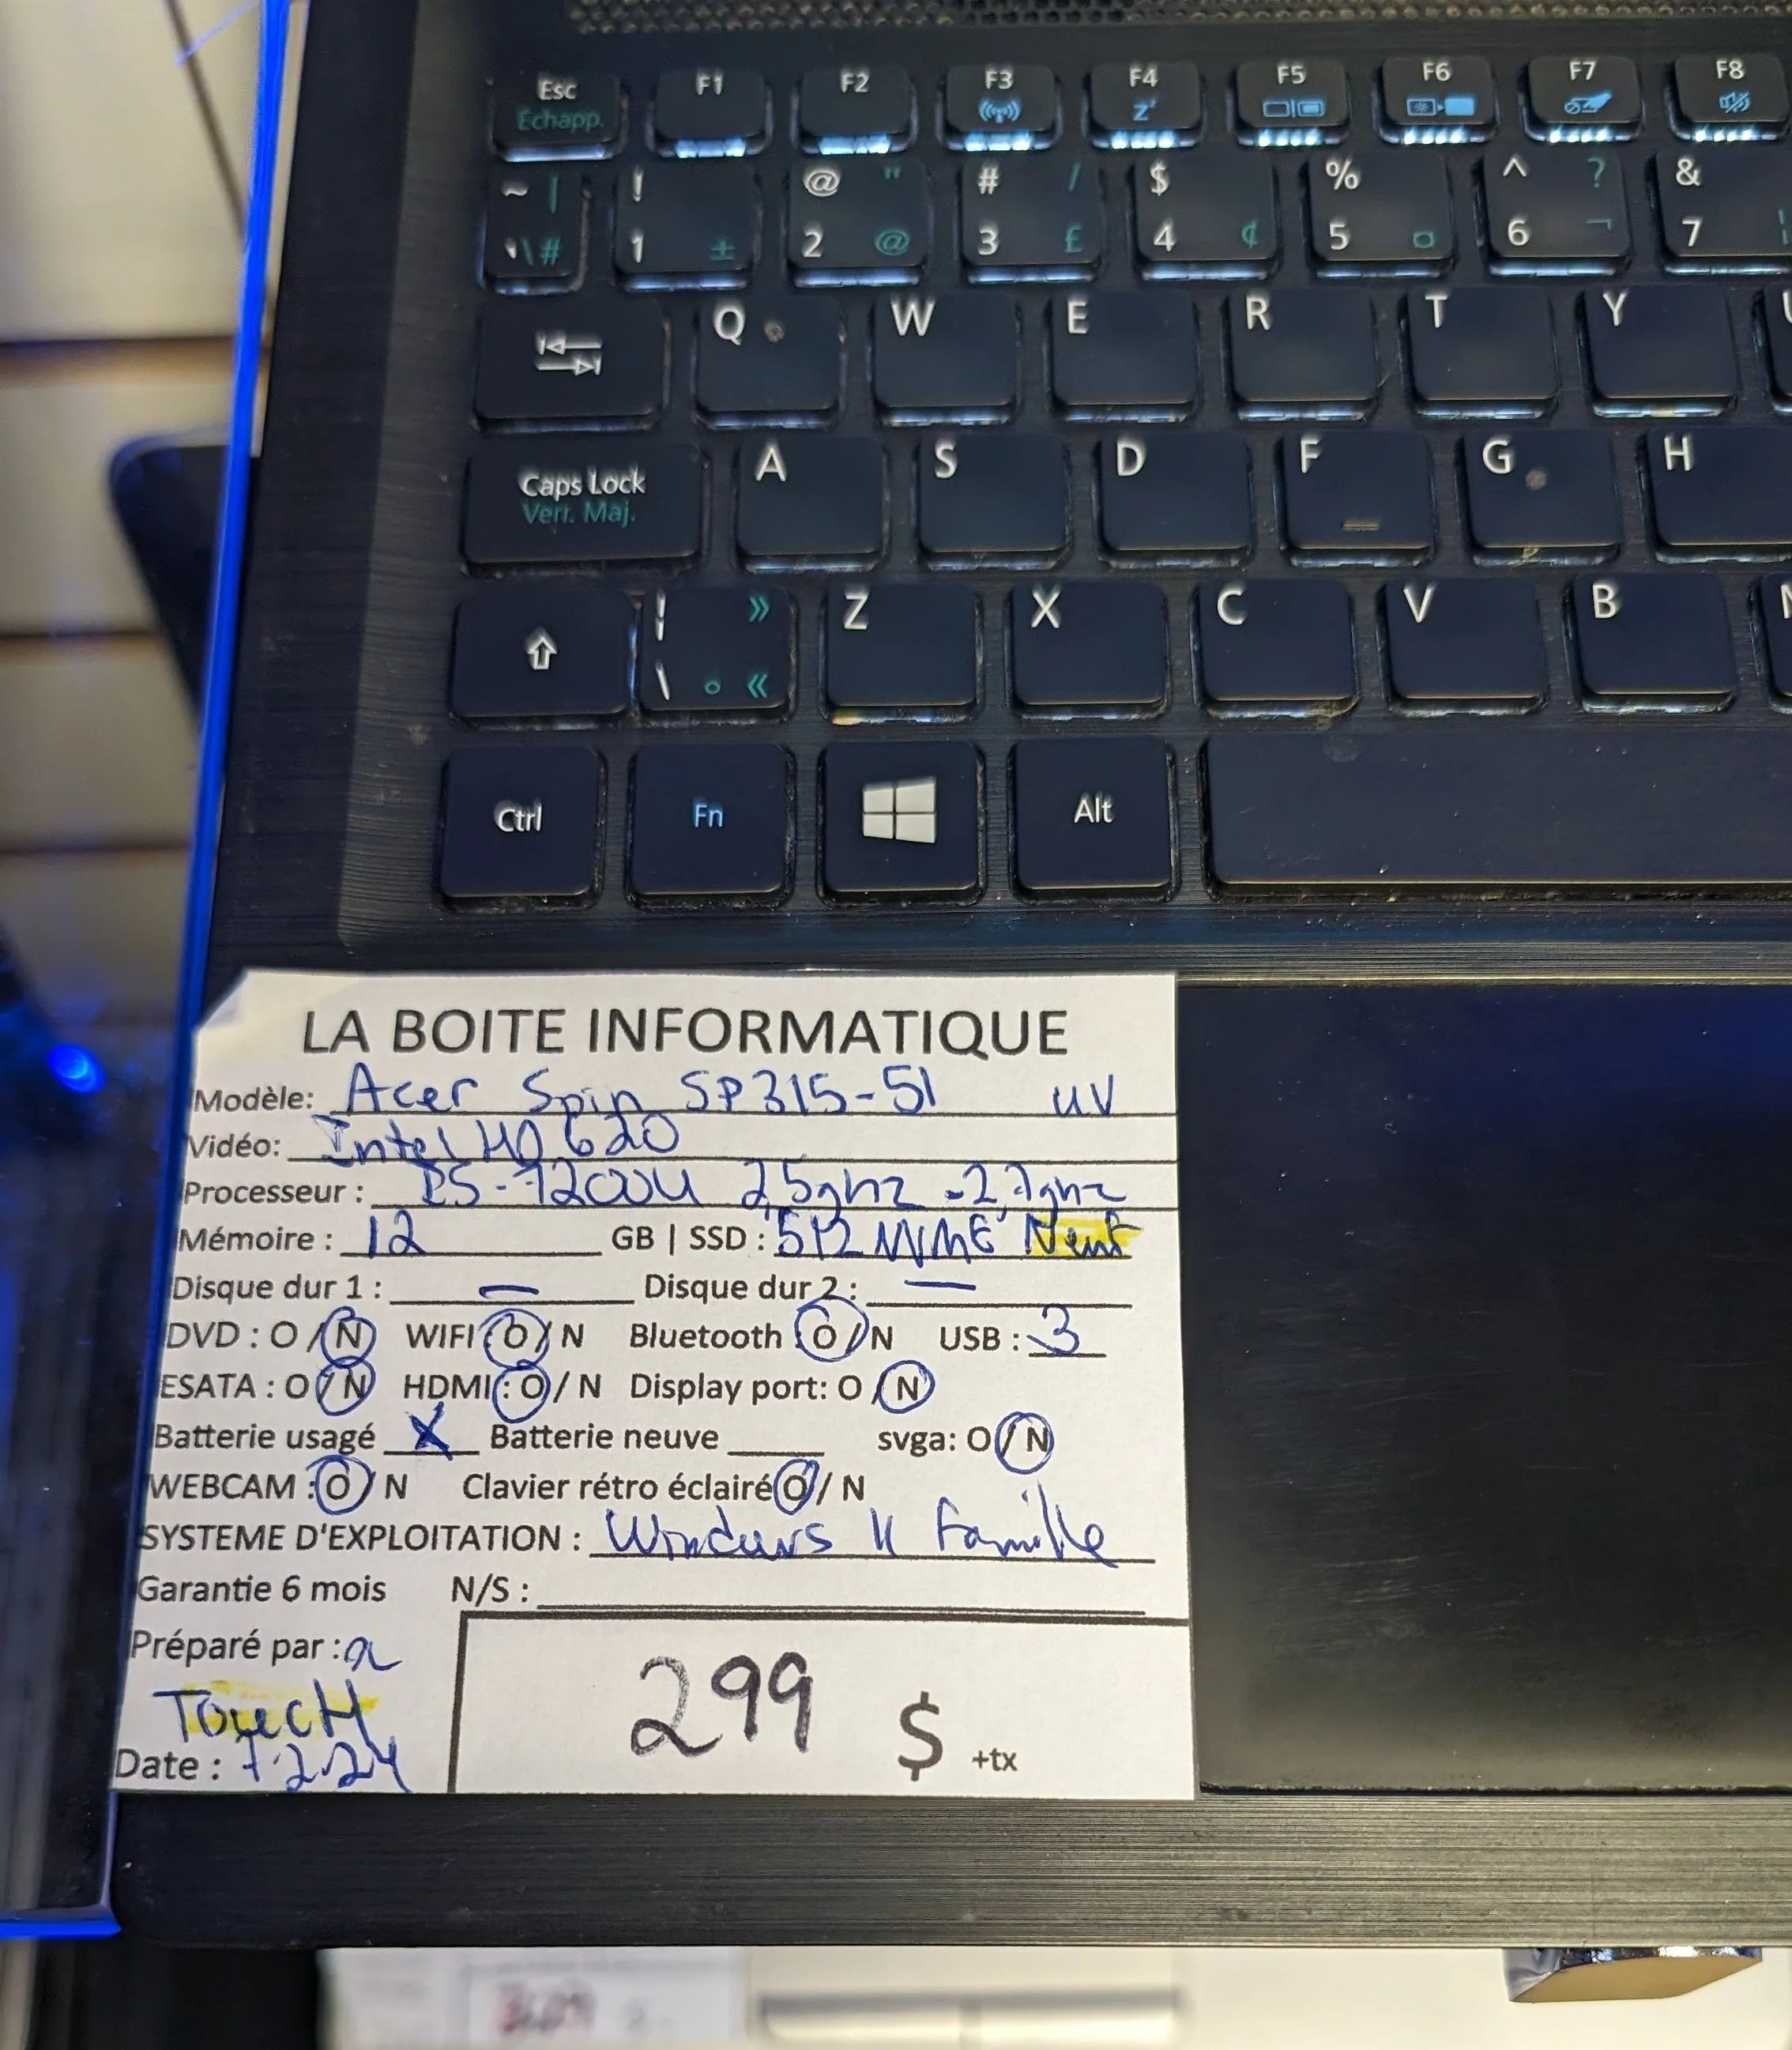 Esc F1 F2 F3 F4 F5 F6 F7 F8
Échapp. Z
~ | ! @ " # / $ % ^ ? &
\ # 1 ± 2 @ 3 £ 4 ¢ 5 ¤ 6 ¬ 7
Q W E R T Y
Caps Lock A S D F G H
Verr. Maj.
¦ » Z X C V B
\ ° «
Ctrl Fn Alt
LA BOITE INFORMATIQUE
Modèle: Acer Spin SP315-51 UV
Vidéo: Intel HD 620
Processeur : I5-7200U 2,5ghz - 2,7ghz
Mémoire : 12 GB | SSD : 512 NVME Neuf
Disque dur 1 : — Disque dur 2 : —
DVD : O / N WIFI : O / N Bluetooth O / N USB : 3
ESATA : O / N HDMI : O / N Display port: O / N
Batterie usagé X Batterie neuve svga: O / N
WEBCAM : O / N Clavier rétro éclairé O / N
SYSTEME D'EXPLOITATION : Windows 11 Famille
Garantie 6 mois N/S :
Préparé par :
Touch
Date : 7.2.24
299 $ +tx